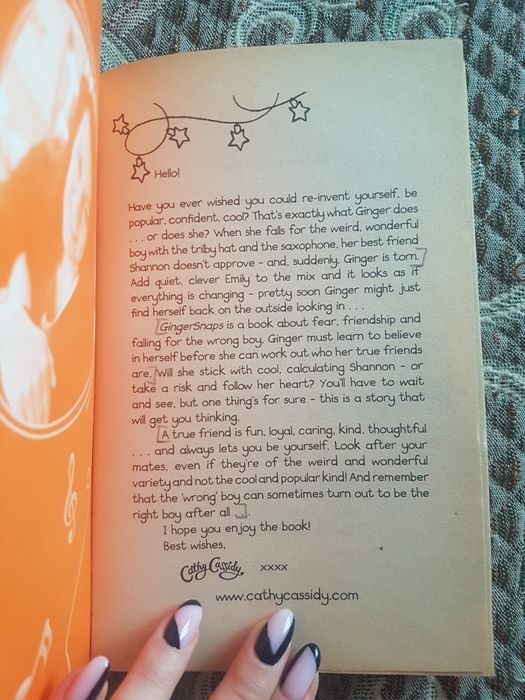 Hello!
Have you ever wished you could re-invent yourself, be
popular, confident, cool? That's exactly what Ginger does
. . . or does she? When she falls for the weird, wonderful
boy with the trilby hat and the saxophone, her best friend
Shannon doesn't approve – and, suddenly, Ginger is torn.
Add quiet, clever Emily to the mix and it looks as if
everything is changing – pretty soon Ginger might just
find herself back on the outside looking in . . .
GingerSnaps is a book about fear, friendship and
falling for the wrong boy. Ginger must learn to believe
in herself before she can work out who her true friends
are. Will she stick with cool, calculating Shannon – or
take a risk and follow her heart? You'll have to wait
and see, but one thing's for sure – this is a story that
will get you thinking.
A true friend is fun, loyal, caring, kind, thoughtful
. . . and always lets you be yourself. Look after your
mates, even if they're of the weird and wonderful
variety and not the cool and popular kind! And remember
that the 'wrong' boy can sometimes turn out to be the
right boy after all . . .
I hope you enjoy the book!
Best wishes,
Cathy Cassidy, xxxx
www.cathycassidy.com